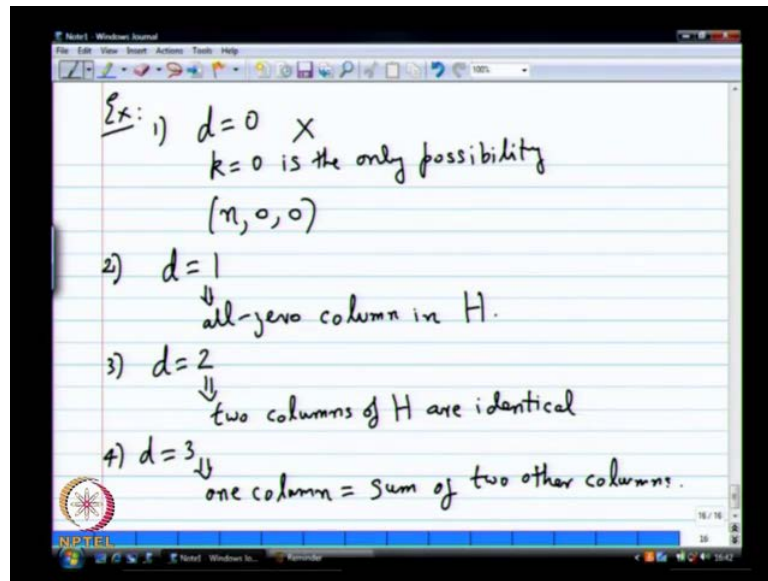 Note1 - Windows Journal
File Edit View Insert Actions Tools Help
100%
Ex: 1) d = 0 X
k = 0 is the only possibility
(n, 0, 0)
2) d = 1
⇓
all-zero column in H.
3) d = 2
⇓
two columns of H are identical
4) d = 3
⇓
one column = sum of two other columns.
16 / 16
16
NPTEL
Note1 - Windows Jo... Reminder
16:42